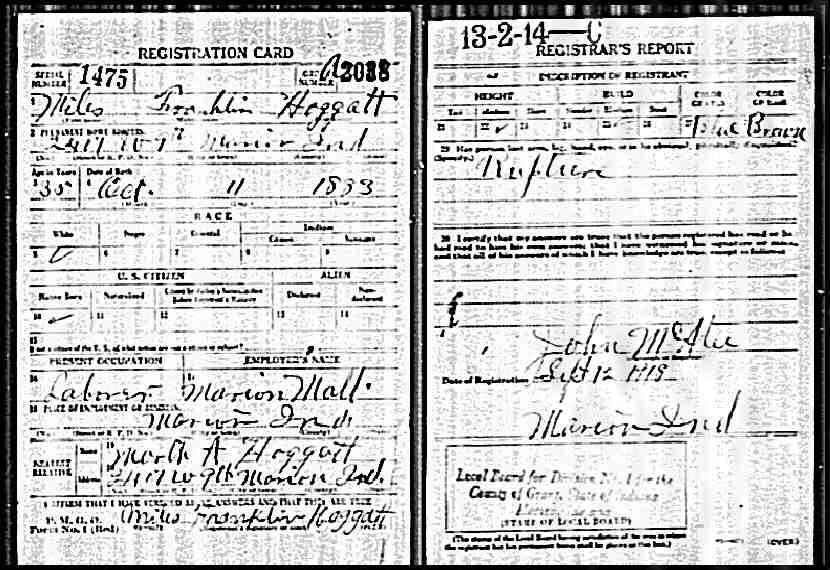 REGISTRATION CARD
SERIAL NUMBER 1475
ORDER NUMBER A2088
1 Miles Franklin Hoggatt
2 PERMANENT HOME ADDRESS:
2417 W 9th Marion Ind
Age in Years
Date of Birth
3
4 Oct. 11 1883
RACE
White
Negro
Oriental
Indian
Citizen
Noncitizen
5 ✓
6
7
8
9
U. S. CITIZEN
ALIEN
Native Born
Naturalized
Citizen by Father's Naturalization Before Registrant's Majority
Declarant
Non-declarant
10 ✓
11
12
13
14
15
If not a citizen of the U. S., of what nation are you a citizen or subject?
PRESENT OCCUPATION
EMPLOYER'S NAME
16 Laborer
17 Marion Mall.
18 PLACE OF EMPLOYMENT OR BUSINESS:
Marion Ind
NEAREST RELATIVE
Name
19 A Hoggatt
Address
20 2417 W 9th Marion Ind.
I AFFIRM THAT I HAVE VERIFIED ABOVE ANSWERS AND THAT THEY ARE TRUE
P. M. G. O.
Form No. 1 (Red)
Miles Franklin Hoggatt
13-2-14—C
REGISTRAR'S REPORT
DESCRIPTION OF REGISTRANT
HEIGHT
BUILD
COLOR OF EYES
COLOR OF HAIR
Tall
Medium
Short
Slender
Medium
Stout
21
22 ✓
23
24
25 ✓
26
27 Blue
Brown
29 Has person lost arm, leg, hand, eye, or is he obviously physically disqualified?
(Specify.)
Rupture
30 I certify that my answers are true; that the person registered has read or has
had read to him his own answers; that I have witnessed his signature or mark,
and that all of his answers of which I have knowledge are true, except as follows:
John McAtee
Date of Registration Sept 12 1918
Marion Ind
Local Board for Division No. 1 for the
County of Grant, State of Indiana
(STAMP OF LOCAL BOARD)
(The stamp of the Local Board having jurisdiction of the area in which
the registrant has his permanent home shall be placed in this box.)
(OVER)